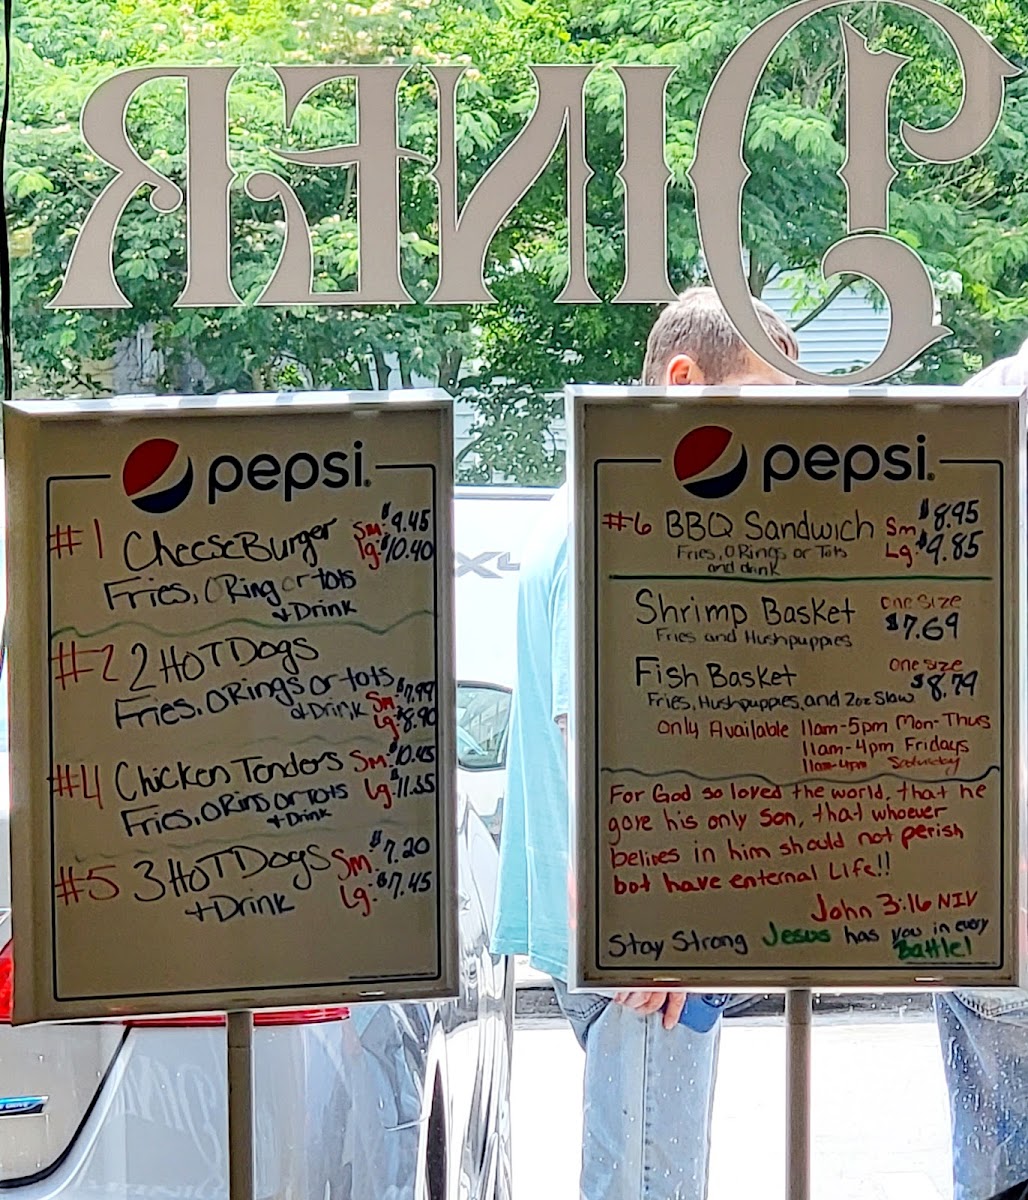 DINER
pepsi.
#1 CheeseBurger Sm. $9.45
lg. $10.40
Fries, O Ring or tots
+ Drink
#2 2 HOT Dogs
Fries, O Rings or tots
+ Drink Sm $7.99
lg $8.90
#4 Chicken Tenders Sm. $10.45
Fries, O Ring or Tots lg. $11.55
+ Drink
#5 3 HOT Dogs Sm. $7.20
+ Drink lg. $7.45
pepsi.
#6 BBQ Sandwich Sm $8.95
Fries, O Rings or Tots Lg. $9.85
and drink
Shrimp Basket one size
Fries and Hushpuppies $7.69
Fish Basket one size
Fries, Hushpuppies, and 2oz Slaw $8.79
Only Available 11am-5pm Mon-Thus
11am-4pm Fridays
11am-4pm Saturday
For God so loved the world, that he
gave his only son, that whoever
belives in him should not perish
but have enternal Life!!
John 3:16 NIV
Stay Strong Jesus has you in every
Battle!
XL